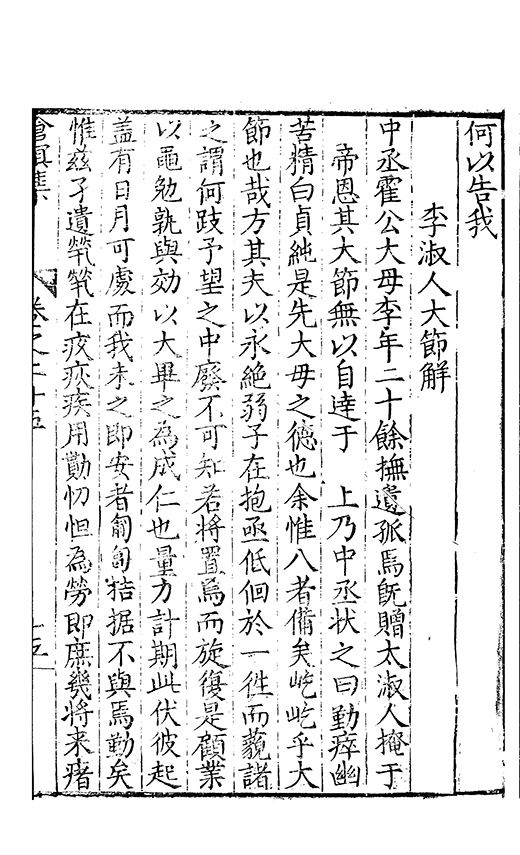 何以告我
李淑人大節解
中丞霍公大母李年二十餘撫遺孤焉旣贈太淑人掩于
帝恩其大節無以自達于　上乃中丞状之曰勤瘁幽
苦精白貞純是先大母之德也余惟八者備矣屹屹乎大
節也哉方其夫以永絶弱子在抱亟低徊於一徃而藐諸
之謂何跂予望之中廢不可知若將置焉而旋復是顧業
以黽勉孰與効以大畢之為成仁也量力計期此伏彼起
盖有日月可處而我未之即安者匍匐拮据不與焉勤矣
惟兹孑遺煢煢在疚疢疾用勤忉怛為勞即庶幾将来瘏
滄溟集　卷之二十五